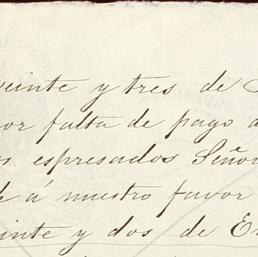 veinte y tres de
por falta de pago
os espresados Señor
de á nuestro favor
einte y dos de En